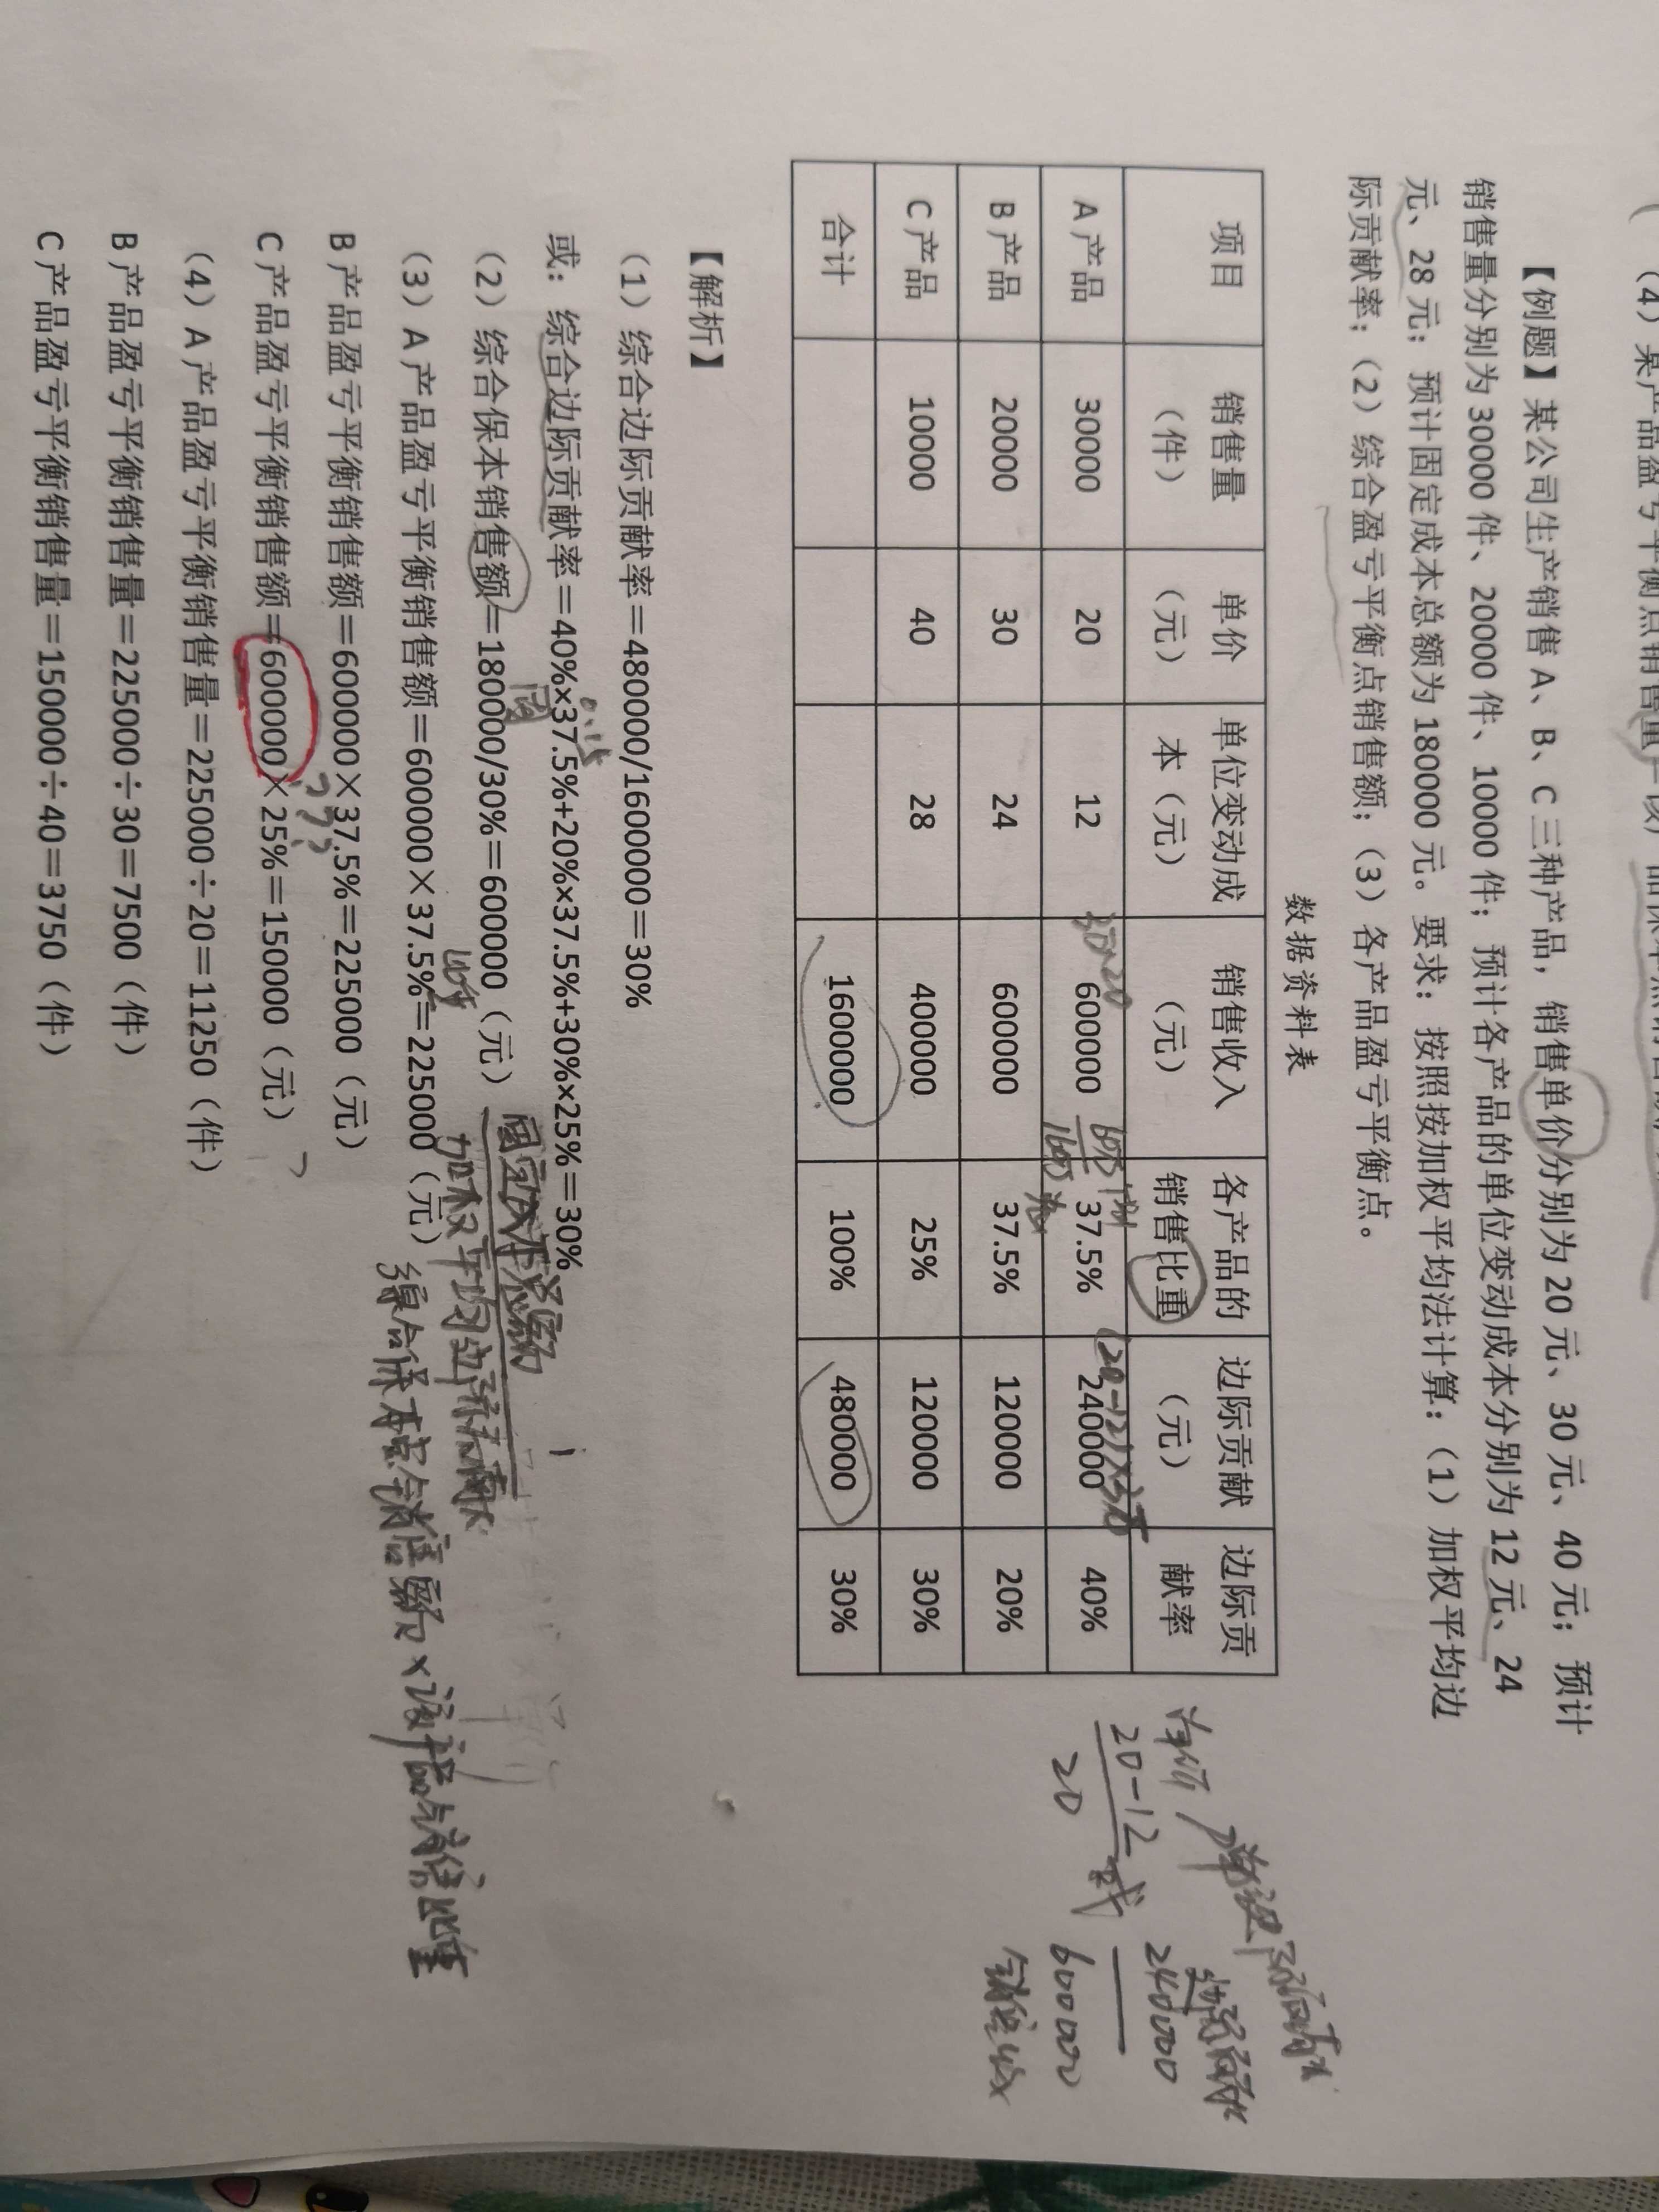 【例题】某公司生产销售 A、B、C 三种产品，销售单价分别为 20 元、30 元、40 元；预计
销售量分别为 30000 件、20000 件、10000 件；预计各产品的单位变动成本分别为 12 元、24
元、28 元；预计固定成本总额为 180000 元。要求：按照按加权平均法计算：（1）加权平均边
际贡献率；（2）综合盈亏平衡点销售额；（3）各产品盈亏平衡点。
数据资料表
项目 销售量（件） 单价（元） 单位变动成本（元） 销售收入（元） 各产品的销售比重 边际贡献（元） 边际贡献率
A 产品 30000 20 12 600000 37.5% 240000 40%
B 产品 20000 30 24 600000 37.5% 120000 20%
C 产品 10000 40 28 400000 25% 120000 30%
合计 1600000 100% 480000 30%
20-12
20
240000
600000
【解析】
（1）综合边际贡献率＝480000/1600000＝30%
或：综合边际贡献率＝40%×37.5%+20%×37.5%+30%×25%＝30%
（2）综合保本销售额＝180000/30%＝600000（元）
固
固定成本总额
加权平均边际贡献
（3）A 产品盈亏平衡销售额＝600000×37.5%＝225000（元）
综合保本点销售额×该产品销售比重
B 产品盈亏平衡销售额＝600000×37.5%＝225000（元）
C 产品盈亏平衡销售额＝600000×25%＝150000（元）
（4）A 产品盈亏平衡销售量＝225000÷20＝11250（件）
B 产品盈亏平衡销售量＝225000÷30＝7500（件）
C 产品盈亏平衡销售量＝150000÷40＝3750（件）